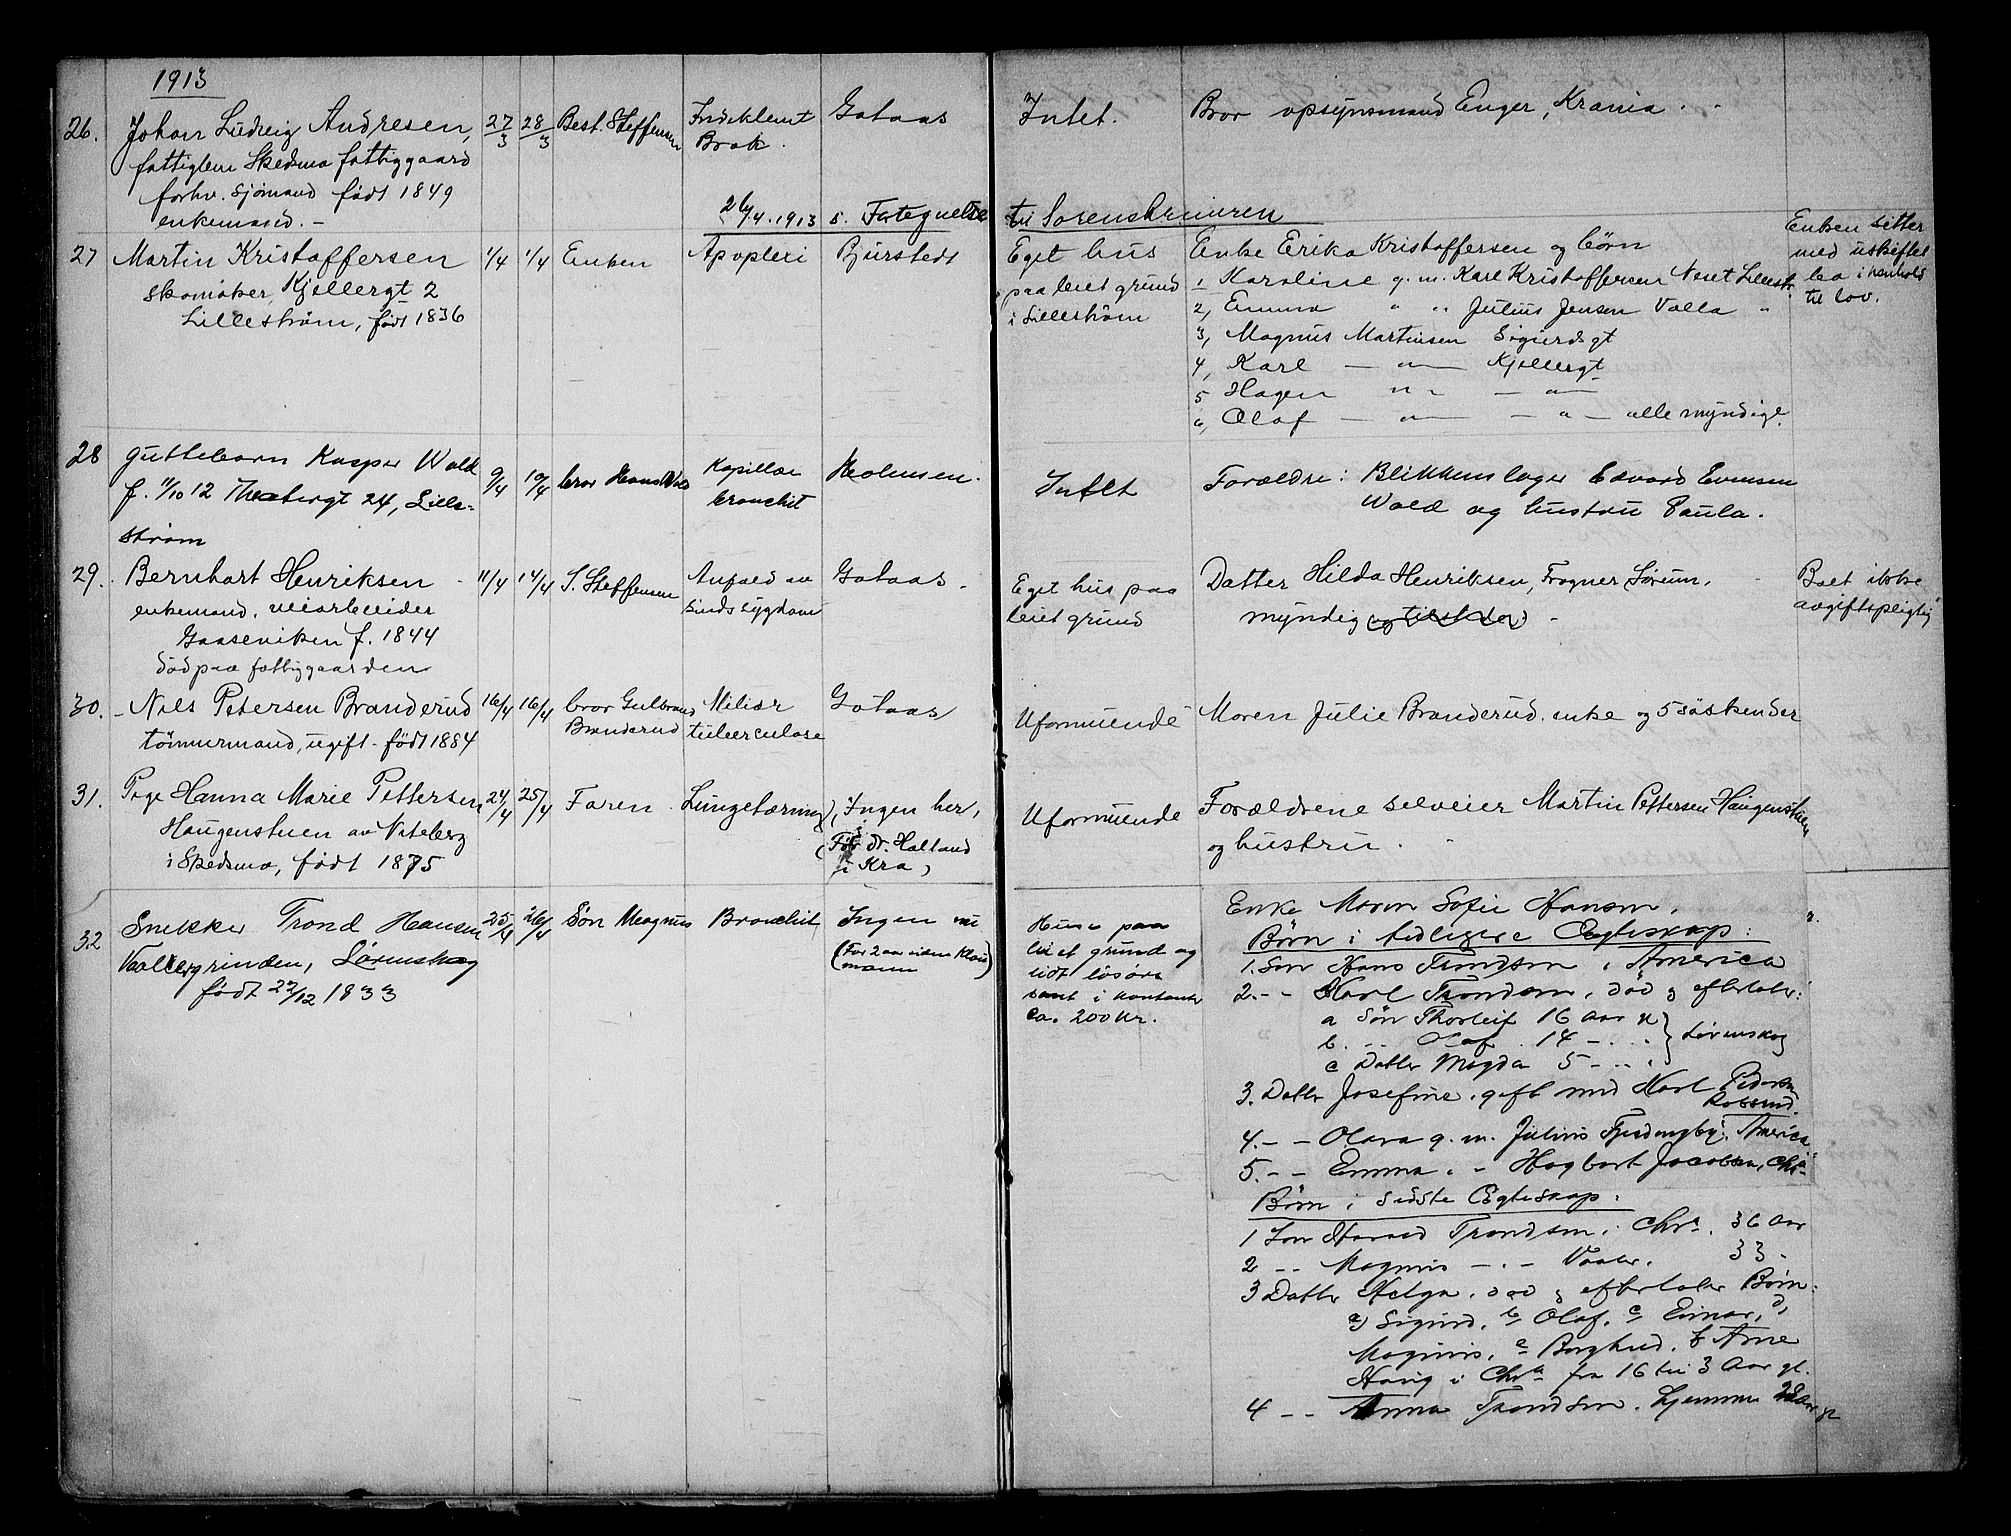 1913
26. Johan Ludvig Andresen, 27/3 28/3 Best. Steffensen Indeklemt Gotaas Intet. Bror opsynsmand Enger, Krania.
fattiglem Skedsmo fattiggaard Brok.
forhv. sjömand født 1849
enkemand. – 26/4.1913 s. Fortegnelse til Sorenskriveren
27 Martin Kristoffersen 1/4 1/4 Enken Apoplexi Bjursted Eget hus Enke Erika Kristoffersen og børn Enken sitter
skomaker, Kjellergt 2 paa leiet grund 1 Karoline g. m. Karl Kristoffersen Næset Lillestr. med uskiftet
Lillestrøm, født 1836 i Lillestrøm 2, Emma " " Julius Jensen Volla " bo i henhold
til lov.
3, Magnus Martinsen Sigurdsgt
4, Karl — " — Kjellergt
5 Hagen " " — " —
6, Olaf — " — — " — alle myndige.
28 guttebarn Kasper Wold 9/4 10/4 bror Hans Wold Kapillær Holmsen. Intet Forældre: Blikkenslager Edvard Evensen
f. 11/10 12 24, Lille- bronchit Wold og hustru Paula.
strøm
29. Bernhart Henriksen 11/4 14/4 S. Steffensen Anfald av Gotaas. Eget hus paa Datter Hilda Henriksen, Frogner Sørum. Boet ikke
enkemand. veiarbeider sindssygdom leiet grund myndig avgiftspligtig
Gaaseviken f. 1844
død paa fattiggaarden
30. Nils Petersen Branderud 16/4 16/4 bror Gulbrand Miliær Gotaas Uformuende Moren Julie Branderud. enke og 5 söskender
tömmermand, ugift. født 1884 Branderud tuberculose
31. Pige Hanna Marie Pettersen 24/4 25/4 Faren Lungetæring Ingen her, Uformuende Forældrene selveier Martin Pettersen Haugenstuen
Haugenstuen av Niteberg (Før dr. Holland og hustru.
i Skedsmo, født 1875 i Kra)
32 Snekker Trond Hansen 25/4 26/4 Søn Magnus Bronchit Ingen nu Huse paa Enke Maren Sofie Hansen.
Vallergrinden, Lørenskog (For 2 aar siden Klaus- leiet grund og Børn i tidligere Ægteskap:
født 22/12 1833 mann) lidt løsøre 1. Søn Hans Trondsen i America
samt i kontanter 2. - - Karl Trondsen, død og efterlater:
ca. 200 kr. a Søn Thorleif 16 aar
b. .. Olaf 14 - . . } Lørenskog
c Datter Magda 5 - ..
3. Datter Josefine, gift med Karl Pedersen
Robsrud.
4. - - Olava g. m. Julius Fjeldingby, America
5. - - Emma . - Hagbart Jacobsen, Chr.
Børn i sidste Ægteskap:
1 Søn Harald Trondsen, Chra. 36 Aar
2 - - Magnus - . - Vaaler. 33 -
3 Datter Helga, død og efterlater Børn:
a) Sigurd, b Olaf, c Einar, d)
Magnus, e Borghild, f Arne
Haug i Chra fra 16 til 3 Aar gl.
4 - - Anna Trondsen. hjemme 28 aar gl